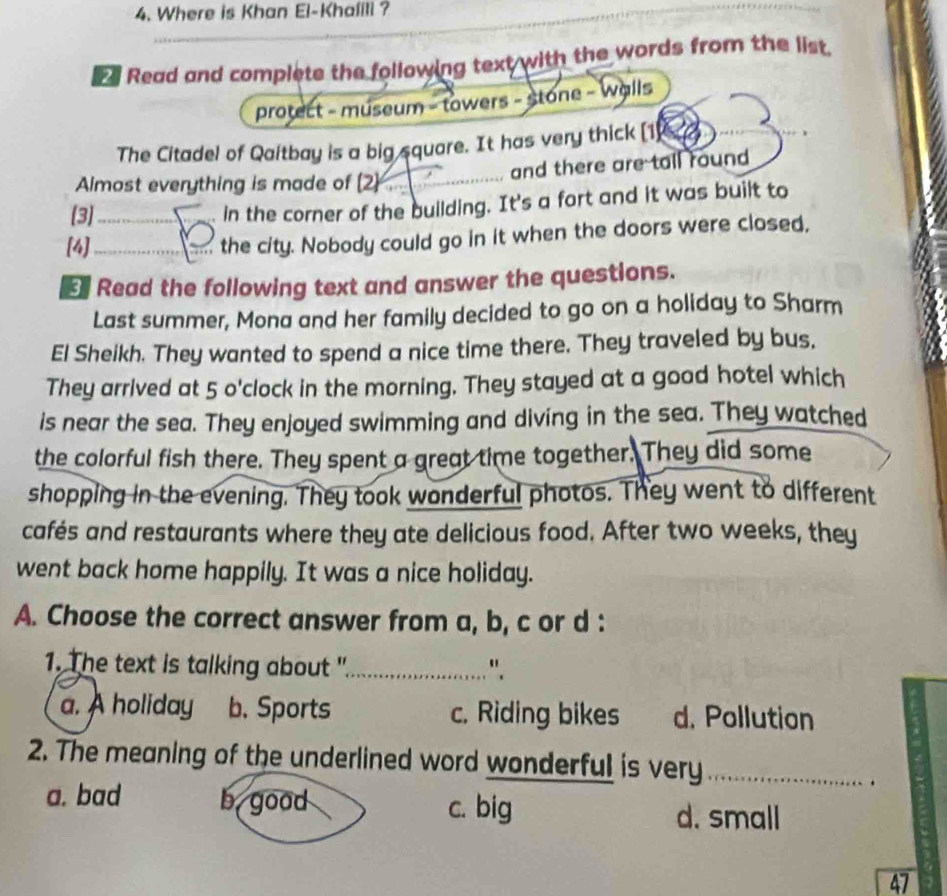 4. Where is Khan El-Khalili ?
2 Read and complete the following text with the words from the list.
protect - museum - towers - stone - walls
The Citadel of Qaitbay is a big square. It has very thick (1) .............. .
Almost everything is made of (2) .............. and there are tall round
(3) .............. in the corner of the building. It's a fort and it was built to
(4) .............. the city. Nobody could go in it when the doors were closed.
3 Read the following text and answer the questions.
Last summer, Mona and her family decided to go on a holiday to Sharm
El Sheikh. They wanted to spend a nice time there. They traveled by bus.
They arrived at 5 o'clock in the morning. They stayed at a good hotel which
is near the sea. They enjoyed swimming and diving in the sea. They watched
the colorful fish there. They spent a great time together. They did some
shopping in the evening. They took wonderful photos. They went to different
cafés and restaurants where they ate delicious food. After two weeks, they
went back home happily. It was a nice holiday.
A. Choose the correct answer from a, b, c or d :
1. The text is talking about "..............".
a. A holiday b. Sports c. Riding bikes d. Pollution
2. The meaning of the underlined word wonderful is very .............. .
a. bad b. good c. big d. small
47